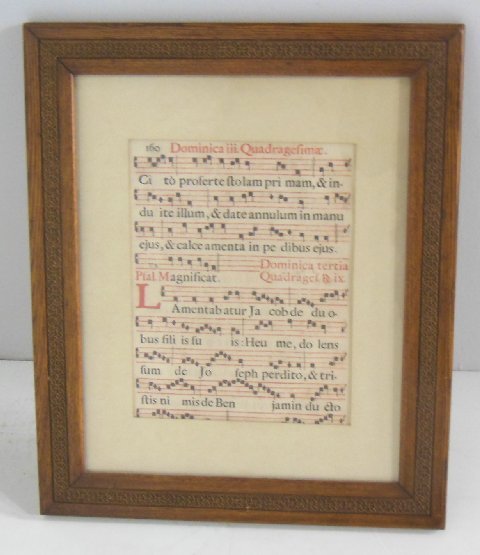 160 Dominica iii. Quadragesimæ.
Ci tò proferte stolam pri mam, & in-
du ite illum, & date annulum in manu
ejus, & calce amenta in pe dibus ejus.
Dominica tertia
Psal. Magnificat. Quadrages. & ix.
LAmentabatur Ja cob de du o-
bus fili is su is: Heu me, do lens
sum de Jo seph perdito, & tri-
stis ni mis de Ben jamin du cto